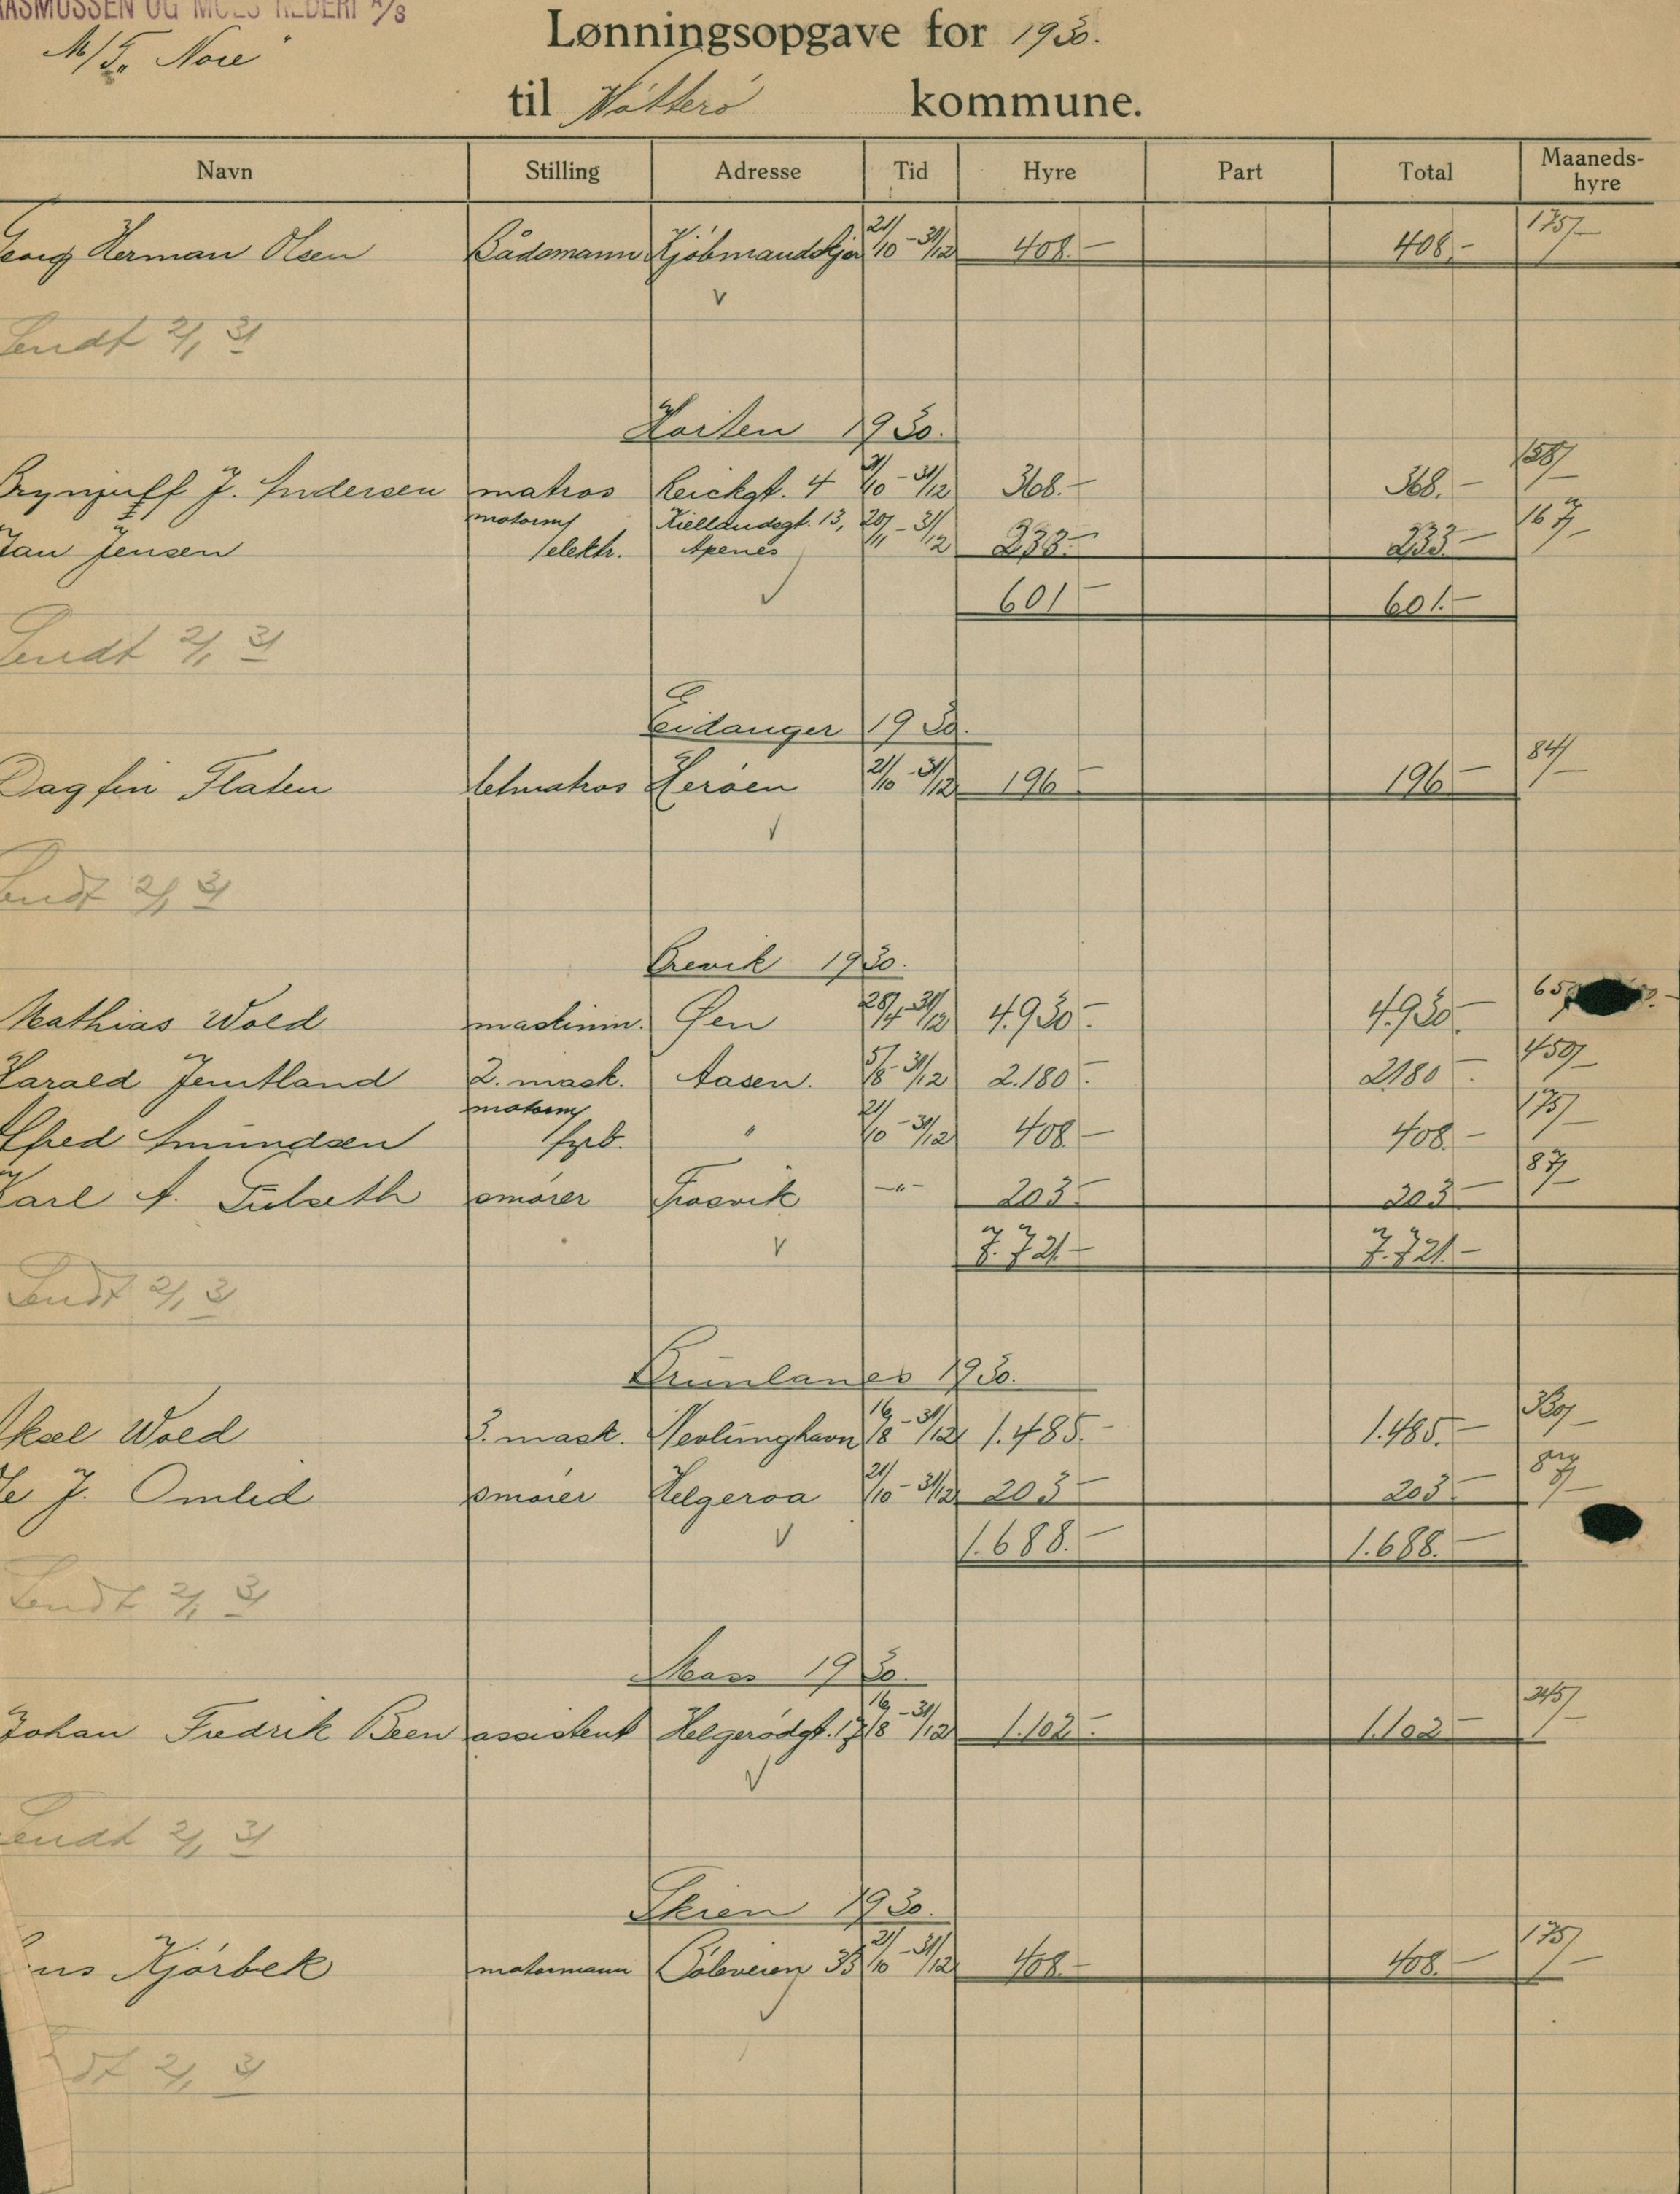 RASMUSSEN OG MOES REDERI A/S
M/T. "Nore"
Lønningsopgave for 1930.
til Nøtterö kommune.
Navn Stilling Adresse Tid Hyre Part Total Maaneds-hyre
Georg Herman Olsen Bådsmann Kjöbmandskjær 21/10 - 31/12 408.- 408.- 175/-
Sendt 2/1 31
Horten 1930.
Brynjulf J. Andersen matros Reichgt. 4 21/10 - 31/12 368.- 368.- 158/-
Jan Jensen motorm/elektr. Kiellandsgt. 13, Apenes 20/11 - 31/12 233.- 233.- 167/-
601.- 601.-
Sendt 2/1 31
Eidanger 1930.
Dagfin Flaten letmatros Heröen 21/10 - 31/12 196.- 196.- 84/-
Sendt 2/1 31
Brevik 1930.
Mathias Wold maskinm. Øen 28/4 - 31/12 4.930.- 4.930.-
Harald Jemtland 2. mask. Aasen. 5/8 - 31/12 2.180.- 2.180.- 450/-
Alfred Amundsen motorm/fyrb. " 21/10 - 31/12 408.- 408.- 175/-
Karl A. Tulseth smörer Trosvik -"- 203.- 203.- 87/-
7.721.- 7.721.-
Sendt 2/1 31
Brunlanes 1930.
Aksel Wold 3. mask. Nevlunghavn 16/8 - 31/12 1.485.- 1.485.- 330/-
J. Omlid smörer Helgeroa 21/10 - 31/12 203.- 203.- 87/-
1.688.- 1.688.-
Sendt 2/1 31
Moss 1930.
Johan Fredrik Been assistent Helgerödgt. 17 16/8 - 31/12 1.102.- 1.102.- 245/-
Sendt 2/1 31
Skien 1930.
Kjörbek motormann Böleveien 35 21/10 - 31/12 408.- 408.- 175/-
2/1 31